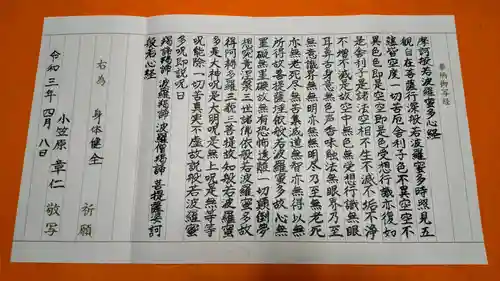 奉納御写経
摩訶般若波羅蜜多心経
観自在菩薩行深般若波羅蜜多時照見五
蘊皆空度一切苦厄舎利子色不異空空不
異色色即是空空即是色受想行識亦復如
是舎利子是諸法空相不生不滅不垢不浄
不増不減是故空中無色無受想行識無眼
耳鼻舌身意無色声香味触法無眼界乃至
無意識界無無明亦無無明尽乃至無老死
亦無老死尽無苦集滅道無智亦無得以無
所得故菩提薩埵依般若波羅蜜多故心無
罣礙無罣礙故無有恐怖遠離一切顛倒夢
想究竟涅槃三世諸佛依般若波羅蜜多故
得阿耨多羅三藐三菩提故知般若波羅蜜
多是大神呪是大明呪是無上呪是無等等
呪能除一切苦真実不虚故説般若波羅蜜
多呪即説呪曰
羯諦羯諦 波羅羯諦 波羅僧羯諦 菩提薩婆訶
般若心経
右為 身体健全 祈願
令和三年四月八日
小笠原章仁 敬写